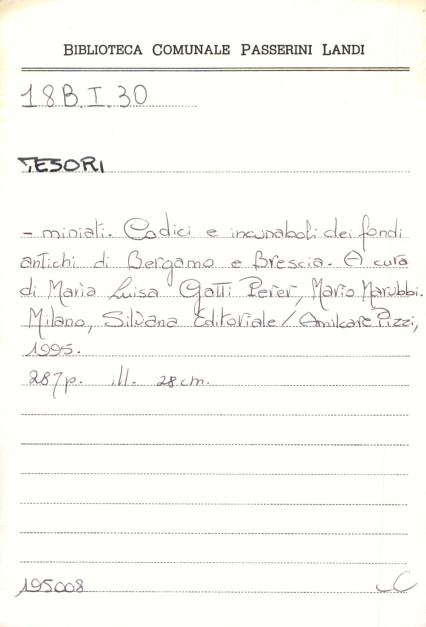 BIBLIOTECA COMUNALE PASSERINI LANDI
18B.I.30
TESORI
- miniati. Codici e incunaboli dei fondi
antichi di Bergamo e Brescia. A cura
di Maria Luisa Gatti Perer, Mario Marubbi.
Milano, Silvana Editoriale / Amilcare Pizzi,
1995.
287p. ill. 28cm.
195008